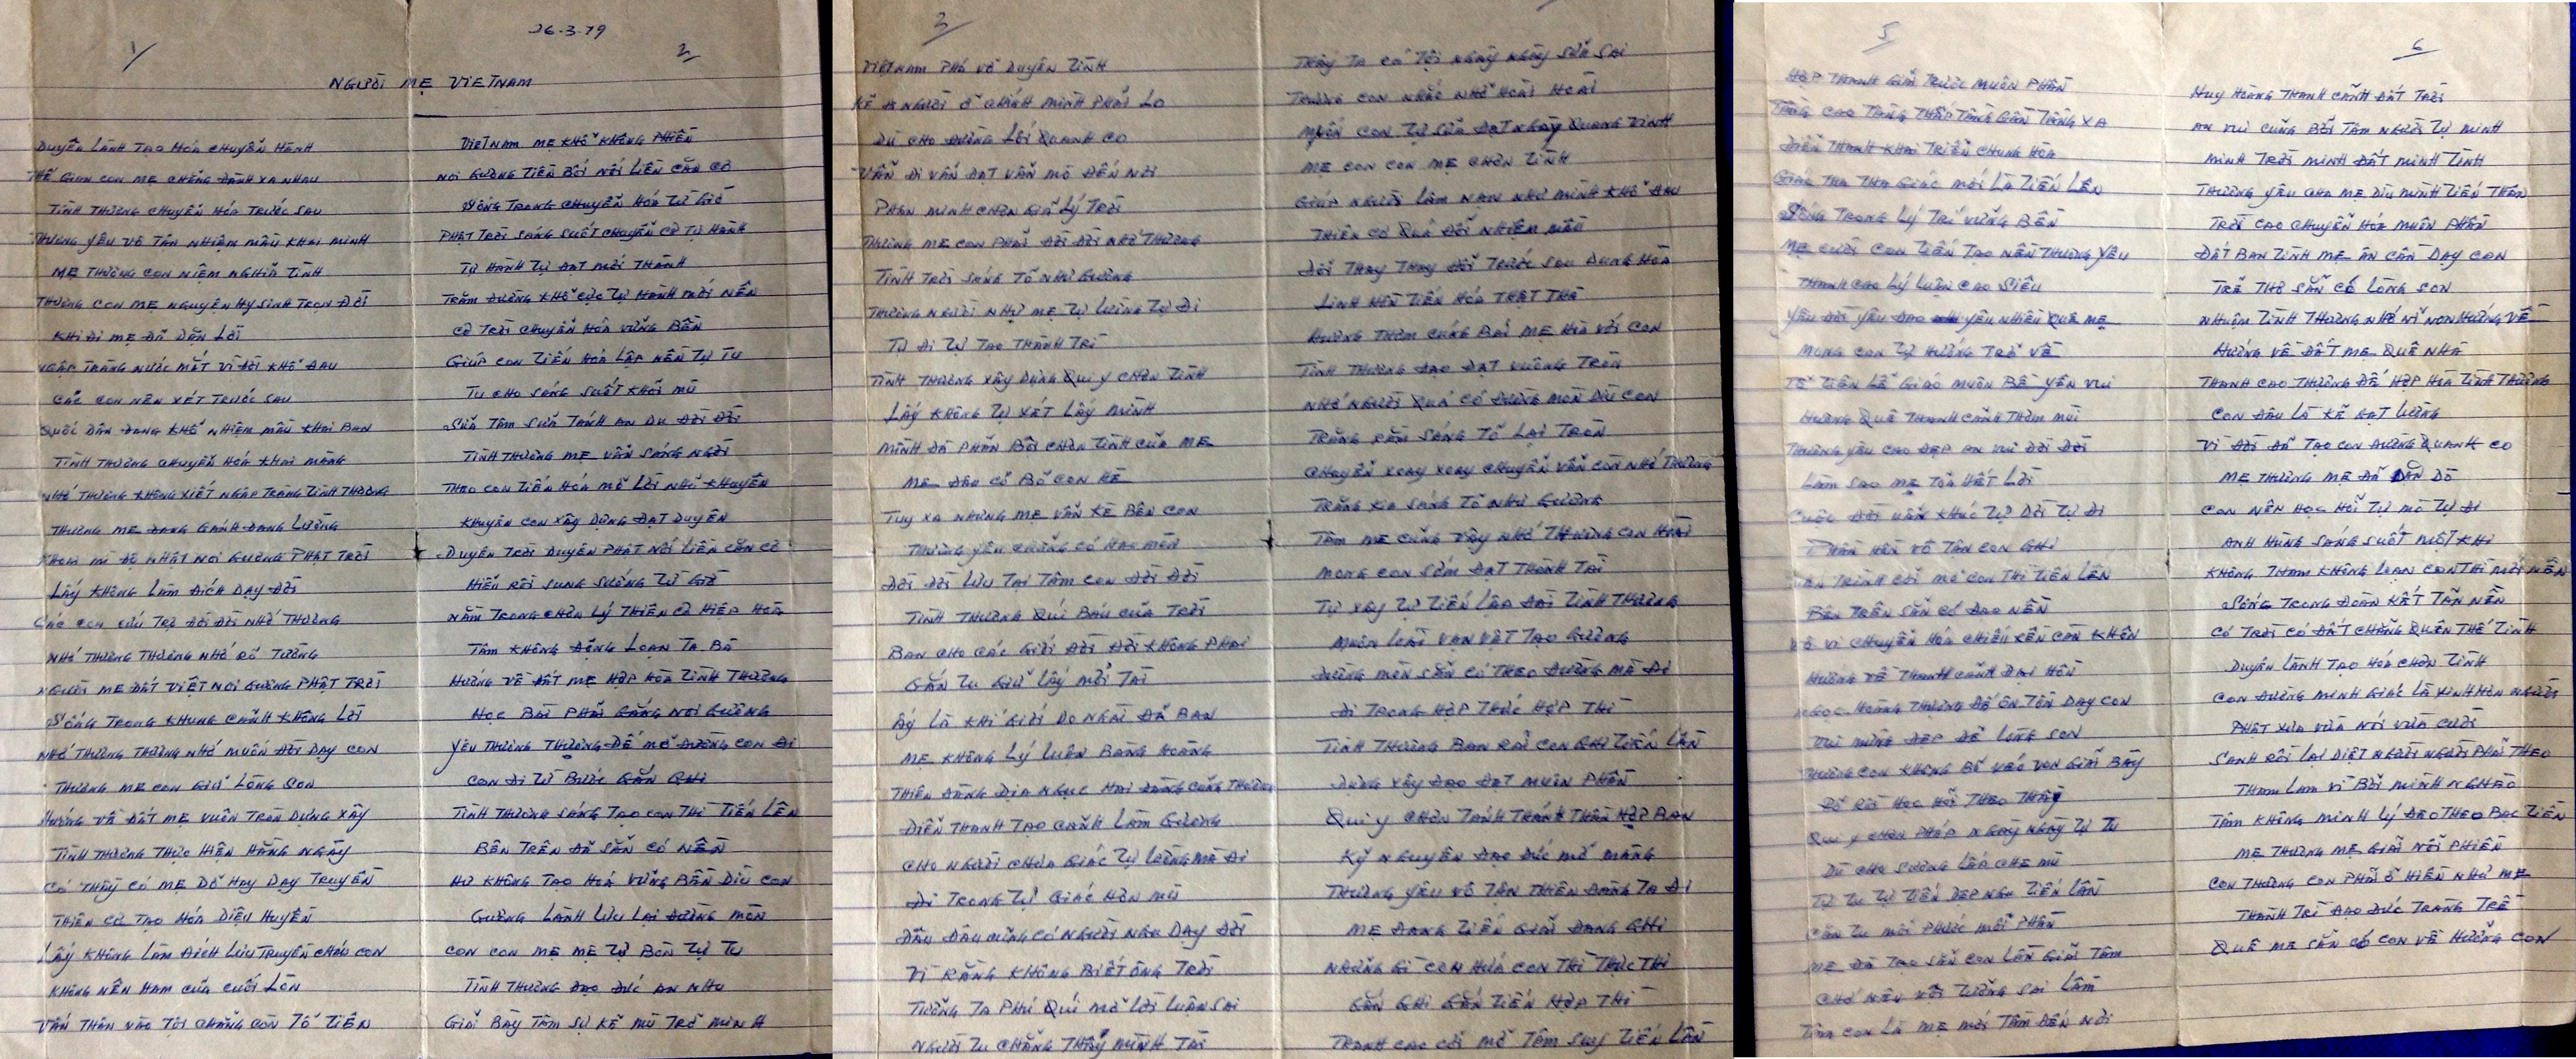 26.3.79
1/
2
NGƯỜI MẸ VIETNAM
DUYÊN LÀNH TẠO HÓA CHUYỂN HÀNH
THẾ GIAN CON MẸ CHẲNG ĐÀNH XA NHAU
TÌNH THƯƠNG CHUYỂN HÓA TRƯỚC SAU
THƯƠNG YÊU VÔ TẬN NHIỆM MẦU KHAI MINH
MẸ THƯƠNG CON NIỆM NGHĨA TÌNH
THƯƠNG CON MẸ NGUYỆN HY SINH TRỌN ĐỜI
KHI ĐI MẸ ĐÃ DẶN LỜI
NGẬP TRÀNG NƯỚC MẮT VÌ ĐỜI KHỔ ĐAU
CÁC CON NÊN XÉT TRƯỚC SAU
QUỐC DÂN ĐANG KHỔ NHIỆM MẦU KHAI BAN
TÌNH THƯƠNG CHUYỂN HÓA KHAI MÀNG
NHỚ THƯƠNG KHÔNG XIẾT NGẬP TRÀNG TÌNH THƯƠNG
THƯƠNG MẸ ĐANG GÁNH ĐANG LƯỜNG
NOI GƯƠNG PHẬT TRỜI
LẤY KHÔNG LÀM ĐÍCH DẠY ĐỜI
CÁC CON CỨU TRỢ ĐỜI ĐỜI NHỚ THƯƠNG
NHỚ THƯƠNG THƯƠNG NHỚ RÕ TƯỜNG
NGƯỜI MẸ ĐẤT VIỆT NOI GƯƠNG PHẬT TRỜI
SỐNG TRONG KHUNG CẢNH KHÔNG LỜI
NHỚ THƯƠNG THƯƠNG NHỚ MUÔN ĐỜI DẠY CON
THƯƠNG MẸ CON GIỮ LÒNG SON
HƯỚNG VỀ ĐẤT MẸ VUÔN TRÒN DỰNG XÂY
TÌNH THƯƠNG THỰC HIỆN HẰNG NGÀY
CÓ THẦY CÓ MẸ DỞ HAY DẠY TRUYỀN
THIÊN CƠ TẠO HÓA DIỆU HUYỀN
LẤY KHÔNG LÀM ĐÍCH LƯU TRUYỀN CHÁU CON
KHÔNG NÊN HAM CỦA CUỐI LÒN
VẤN THÂN VÀO TỘI CHẲNG CÒN TỔ TIÊN
VIETNAM MẸ KHỔ KHÔNG PHIỀN
NOI GƯƠNG TIỀN BỐI NỐI LIỀN CĂN CƠ
SỐNG TRONG CHUYỂN HÓA TỪ GIỜ
PHẬT TRỜI SÁNG SUỐT CHUYỂN CƠ TỰ HÀNH
TỰ HÀNH TỰ ĐẠT MỚI THÀNH
TRĂM ĐƯỜNG KHỔ CỰC TỰ HÀNH MỚI NÊN
CƠ TRỜI CHUYỂN HÓA VỮNG BỀN
GIÚP CON TIẾN HÓA LẬP NÊN TỰ TU
TU CHO SÁNG SUỐT KHỎI MÙ
SỬA TÂM SỬA TÁNH AN DU ĐỜI ĐỜI
TÌNH THƯƠNG MẸ VẪN SÁNG NGỜI
THEO CON TIẾN HÓA MỞ LỜI NHỦ KHUYÊN
KHUYÊN CON XÂY DỰNG ĐẠT DUYÊN
DUYÊN TRỜI DUYÊN PHẬT NỐI LIỀN CĂN CƠ
HIỂU RỒI SUNG SƯỚNG TỪ GIỜ
NẰM TRONG CHƠN LÝ THIÊN CƠ HIỆP HÒA
TÂM KHÔNG ĐỘNG LOẠN TA BÀ
HƯỚNG VỀ ĐẤT MẸ HỢP HÒA TÌNH THƯƠNG
HỌC BÀI PHẢI GẮNG NOI GƯƠNG
YÊU THƯƠNG THƯỢNG ĐẾ MỞ ĐƯỜNG CON ĐI
CON ĐI TỪ BƯỚC GẮN GHI
TÌNH THƯƠNG SÁNG TẠO CON THÌ TIẾN LÊN
BỀN TRÊN ĐÃ SẴN CÓ NỀN
HƯ KHÔNG TẠO HÓA VỮNG BỀN DÌU CON
GƯƠNG LÀNH LƯU LẠI ĐƯỜNG MÒN
CON CON MẸ MẸ TỰ BÒN TỰ TU
TÌNH THƯƠNG ĐẠO ĐỨC AN NHU
GIẢI BÀY TÂM SỰ KẺ MÙ TRỞ MINH
3
VIỆTNAM PHÁ VỠ DUYÊN TÌNH
KẺ Đ NGƯỜI Ở CHÍNH MÌNH PHẢI LO
DÙ CHO ĐƯỜNG LỐI QUANH CO
VẪN ĐI VẪN ĐẠT VẪN MÒ ĐẾN NƠI
PHÂN MINH CHƠN GIẢ LÝ TRỜI
THƯƠNG MẸ CON PHẢI ĐỜI ĐỜI NHỚ THƯƠNG
TÌNH TRỜI SÁNG TỎ NHƯ GƯƠNG
THƯƠNG NGƯỜI NHƯ MẸ TỰ LƯỜNG TỰ ĐI
TỰ ĐI TỰ TẠO THÀNH TRÌ
TÌNH THƯƠNG XÂY DỰNG QUI Y CHƠN TÌNH
LẤY KHÔNG TỰ XÉT LẤY MÌNH
MÌNH ĐÃ PHẢN BỘI CHƠN TÌNH CỦA MẸ
MẸ ĐÂU CÓ BỎ CON HÈ
TUY XA NHƯNG MẸ VẪN KỀ BÊN CON
THƯƠNG YÊU CHẲNG CÓ HAO MÒN
ĐỜI ĐỜI LƯU TẠI TÂM CON ĐỜI ĐỜI
TÌNH THƯƠNG QUÍ BÁU CỦA TRỜI
BAN CHO CÁC GIỚI ĐỜI ĐỜI KHÔNG PHAI
GẮN TU GIỮ LẤY MỚI TÀI
ẤY LÀ KHÍ GIỚI DO NGÀI ĐÃ BAN
MẸ KHÔNG LÝ LUẬN BÀNG HOÀNG
THIÊN ĐÀNG ĐỊA NGỤC HAI ĐÀNG CŨNG THƯƠNG
ĐIỂN THANH TẠO CẢNH LÀM GƯƠNG
CHO NGƯỜI CHƯA GIÁC TỰ LƯỜNG MÀ ĐI
ĐI TRONG TỰ GIÁC HƠN MÙ
ĐẦU ĐÂU CŨNG CÓ NGƯỜI NGU DẠY ĐỜI
VÌ RẰNG KHÔNG BIẾT ÔNG TRỜI
TƯỞNG TA PHÚ QUÍ MỞ LỜI LUẬN SAI
NGƯỜI TU CHẲNG THẤY MÌNH TÀI
THẤY TA CÓ TỘI NGÀY NGÀY SỬA SAI
THƯƠNG CON NHẮC NHỞ HOÀI HOÀI
MUỐN CON TỰ SỬA ĐẠT NGÀY QUANG VINH
MẸ CON CON MẸ CHƠN TÌNH
GIÚP NGƯỜI LÂM NẠN NHƯ MÌNH KHỔ ĐAU
THIÊN CƠ QUẢ ĐỔI NHIỆM MẦU
ĐỔI THAY THAY ĐỔI TRƯỚC SAU DUNG HÒA
LINH HỒN TIẾN HÓA THẬT THÀ
HƯƠNG THƠM CÚNG BÁI MẸ HÒA VỚI CON
TÌNH THƯƠNG ĐẠO ĐẠT VUÔNG TRÒN
NHỚ NGƯỜI QUÁ CỐ ĐƯỜNG MÒN DÌU CON
TRĂNG RẰM SÁNG TỎ LẠI TRÒN
CHUYỂN XOAY XOAY CHUYỂN VẪN CÒN NHỚ THƯƠNG
TRĂNG KIA SÁNG TỎ NHƯ GƯƠNG
TÂM MẸ CŨNG VẬY NHỚ THƯƠNG CON HOÀI
MONG CON SỚM ĐẠT THÀNH TÀI
TỰ XÂY TỰ TIẾN LẬP ĐÀI TÌNH THƯƠNG
MUÔN LOÀI VẠN VẬT TẠO GƯƠNG
ĐƯỜNG MÒN SẴN CÓ THEO ĐƯỜNG MÀ ĐI
ĐI TRONG HỢP THỨC HỢP THÌ
TÌNH THƯƠNG BAN RẢI CON GHI TIẾN LẦN
DỰNG XÂY ĐẠO ĐẠT MUÔN PHẦN
QUI Y CHƠN TÁNH TRÁNH THÂN HỢP BAN
KỶ NGUYÊN ĐẠO ĐỨC MỞ MÀNG
THƯƠNG YÊU VÔ TẬN THIÊN ĐÀNG TA ĐI
MẸ ĐANG TIẾN GIẢI ĐANG GHI
NHỮNG GÌ CON HỨA CON THÌ THỰC THI
GẮN GHI GẮN TIẾN HỢP THÌ
THANH CAO CỞI MỞ TÂM SUY TIẾN LẦN
5
6
HỢP THANH GIẢI TRƯỢC MUÔN PHẦN
TẦNG CAO TẦNG THẤP TẦNG GẦN TẦNG XA
ĐIỂN THANH KHAI TRIỂN CHUNG HÒA
GIÁC THA THA GIÁC MỚI LÀ TIẾN LÊN
SỐNG TRONG LÝ TRÍ VỮNG BỀN
MẸ CƯỜI CON TIẾN TẠO NÊN THƯƠNG YÊU
THANH CAO LÝ LUẬN CAO SIÊU
YÊU ĐỜI YÊU ĐẠO YÊU NHIỀU QUÊ MẸ
MONG CON TỰ HƯỚNG TRỞ VỀ
TỔ TIÊN LỄ GIÁO MUÔN BỀ YÊN VUI
HƯƠNG QUÊ THANH CẢNH THƠM MÙI
THƯƠNG YÊU CAO ĐẸP AN VUI ĐỜI ĐỜI
LÀM SAO MẸ TỎ HẾT LỜI
CUỘC ĐỜI UẨN KHÚC TỰ DỜI TỰ ĐI
PHÂN HỒN VÔ TẬN CON GHI
TRÌNH CỞI MỞ CON THÌ TIẾN LÊN
BỀN TRÊN SẴN CÓ ĐẠO NỀN
VÔ VI CHUYỂN HÓA CHIẾU XÊN CÀN KHÔN
HƯỚNG VỀ THANH CẢNH ĐẠI HỒN
NGỌC HOÀNG THƯỢNG ĐẾ ÔN TỒN DẠY CON
VUI MỪNG ĐẸP ĐẼ LÒNG SON
THƯƠNG CON KHÔNG BỎ VÉO VON GIẢI BÀY
RÕ RỒI HỌC HỎI THEO THẦY
QUI Y CHƠN PHÁP NGÀY NGÀY TỰ TU
DÙ CHO SƯƠNG LẤP CHE MÙ
TỰ TU TỰ TIẾN DẸP NGU TIẾN LẦN
CĂN TU MỖI PHÚC MỖI PHẦN
MẸ ĐÃ TẠO SẴN CON LẦN GIẢI TÂM
CHỚ NÊN VỘI TƯỞNG SAI LẦM
TÂM CON LÀ MẸ MỚI TẦM ĐẾN NƠI
HUY HOÀNG THANH CẢNH ĐẤT TRỜI
AN VUI CŨNG BỞI TÂM NGƯỜI TỰ MINH
MÌNH TRỜI MÌNH ĐẤT MÌNH TÌNH
THƯƠNG YÊU CHA MẸ DÌU MÌNH TIẾN THÂN
TRỜI CAO CHUYỂN HÓA MUÔN PHẦN
ĐẤT BAN TÌNH MẸ ÂN CẦN DẠY CON
TRẺ THƠ SẴN CÓ LÒNG SON
NHUỘM TÌNH THƯƠNG NHỚ NỈ NON HƯỚNG VỀ
HƯỚNG VỀ ĐẤT MẸ QUÊ NHÀ
THANH CAO THƯỢNG ĐẾ HỢP HÒA TÌNH THƯƠNG
CON ĐÂU LÀ KẺ GẠT LƯỜNG
VÌ ĐỜI ĐÃ TẠO CON ĐƯỜNG QUANH CO
MẸ THƯƠNG MẸ ĐÃ DẶN DÒ
CON NÊN HỌC HỎI TỰ MÒ TỰ ĐI
ANH HÙNG SÁNG SUỐT MỖI KHI
KHÔNG THAM KHÔNG LOẠN CON THÌ MỚI NÊN
SỐNG TRONG ĐOÀN KẾT TẤN NỀN
CÓ TRỜI CÓ ĐẤT CHẲNG QUÊN THẾ TÌNH
DUYÊN LÀNH TẠO HÓA CHƠN TÌNH
CON ĐƯỜNG MINH GIÁC LÀ XINH HƠN NGƯỜI
PHẬT XƯA VỪA NÓI VỪA CƯỜI
SANH RỒI LẠI DIỆT NGƯỜI NGƯỜI PHẢI THEO
THAM LAM VÌ BỞI MÌNH NGHÈO
TÂM KHÔNG MINH LÝ ĐEO THEO BẠC TIỀN
MẸ THƯƠNG MẸ GIẢI NỖI PHIỀN
CON THƯƠNG CON PHẢI Ở HIỀN NHƯ MẸ
THÀNH TRÌ ĐẠO ĐỨC TRÀNG TRỀ
QUÊ MẸ SẴN CÓ CON VỀ HƯỞNG CON